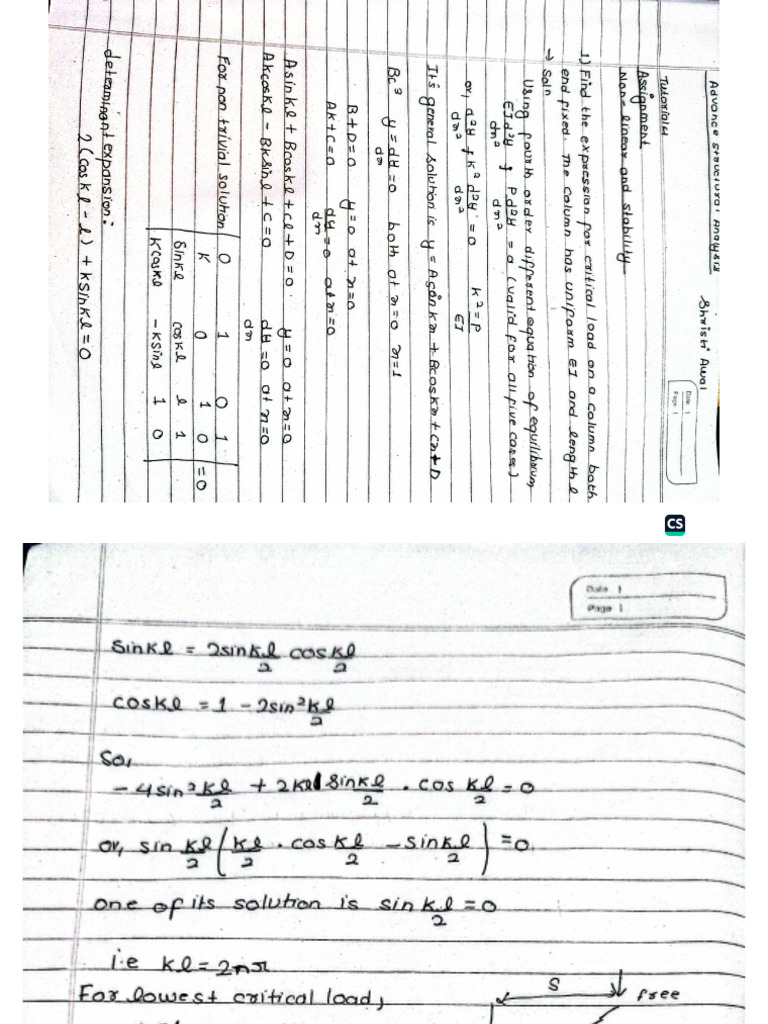 Advance structural Analysis
Shristi Awal
Date 1
Page 1
Tutorials
Assignment
Non-linear and stability
1) Find the expression for critical load on a column both
end fixed. The column has uniform EI and length l
→ Soln
Using fourth order different equation of equilibrium
EI d²y/dn² + Pd²y/dn² = 0 (valid for all five cases)
or, d²y/dn² + K² d²y/dn² = 0 K² = P/EI
It's general solution is y = A sin kn + B cos kn + Cn + D
y = dy/dn = 0 both at n=0 n=1
B+D=0 y=0 at n=0
AK+C=0 dy/dn=0 at n=0
Asinkl + Bcoskl + Cl + D = 0 y=0 at n=0
AKcoskl - BKsinl + C = 0 dy/dn = 0 at n=0
For non trivial solution
0 1 0 1
K 0 1 0 = 0
sinkl coskl l 1
Kcoskl -Ksinl 1 0
determinant expansion:
2(coskl - l) + ksinkl = 0
CS
Date 1
Page 1
sinkl = 2sin kl/2 cos kl/2
coskl = 1 - 2sin² kl/2
So,
- 4sin² kl/2 + 2kl sin kl/2 . cos kl/2 = 0
or, sin kl/2 (kl/2 . cos kl/2 - sin kl/2) = 0
one of its solution is sin kl/2 = 0
i.e kl = 2nπ
For lowest critical load,
S
free